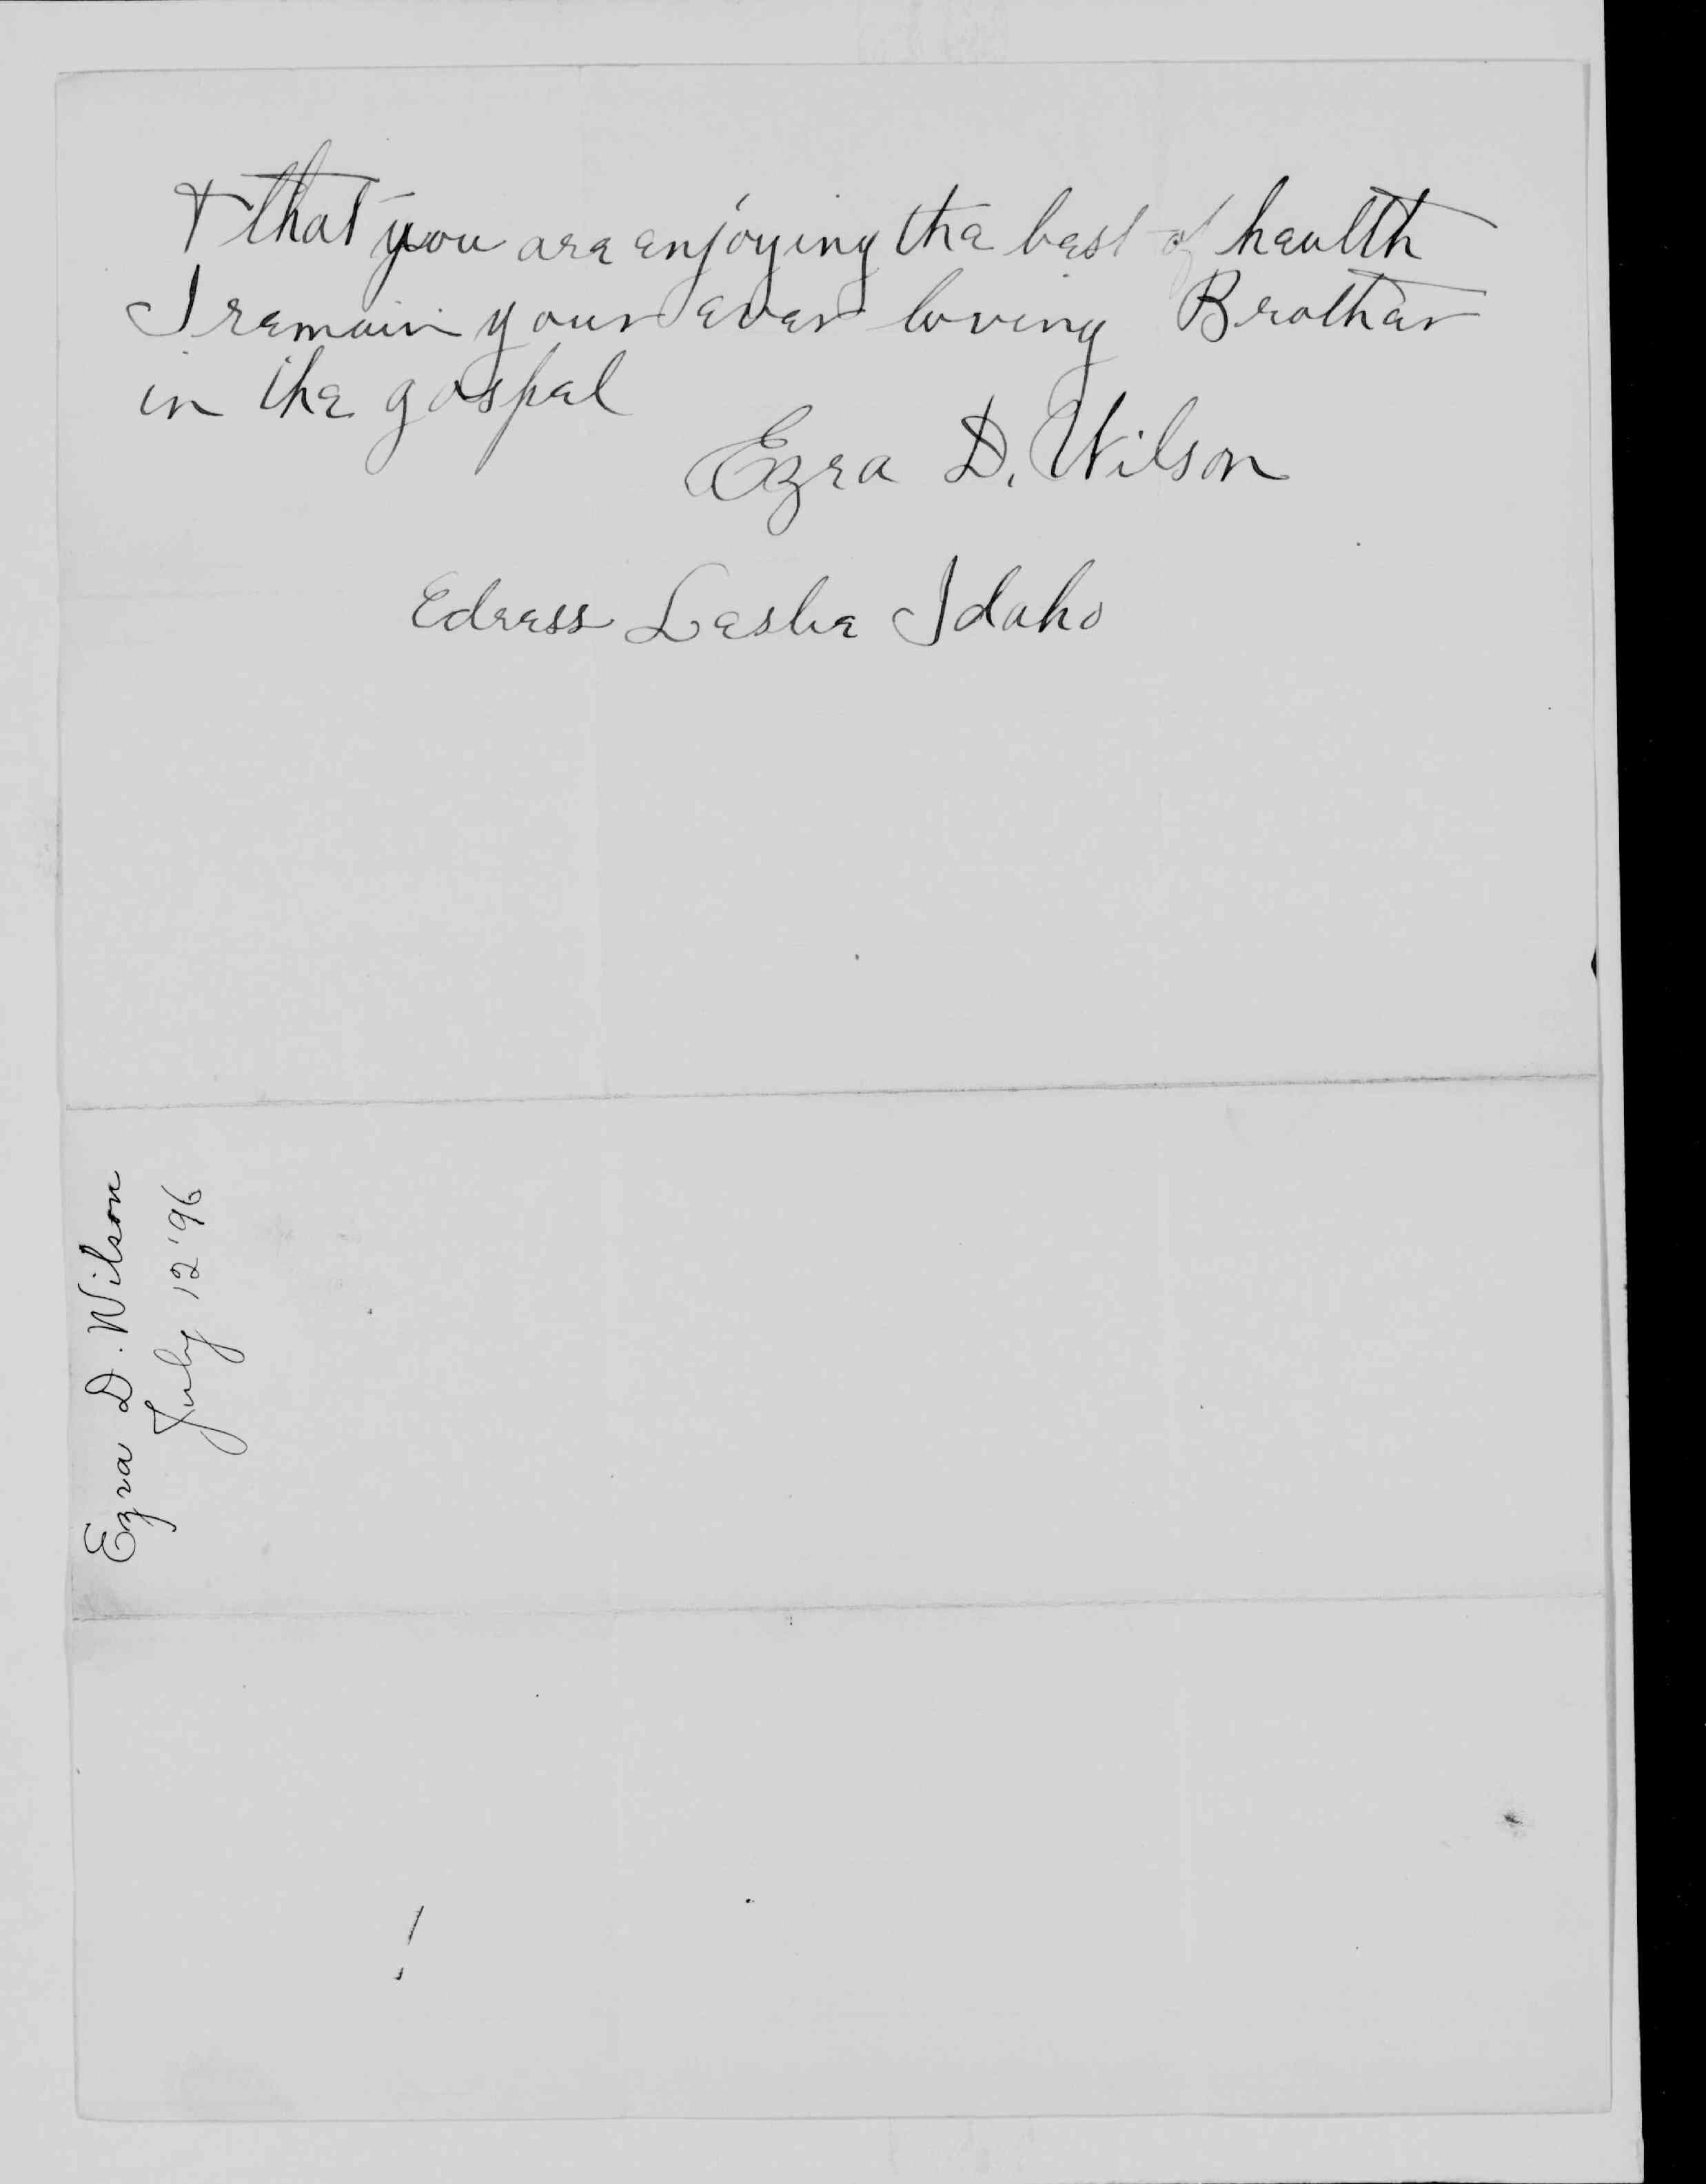 & that you are enjoying the best of health
I remain your ever loving Brother
in the gospel
Ezra D. Wilson
Edress Leslie Idaho
Ezra D. Wilson
July 12 '96